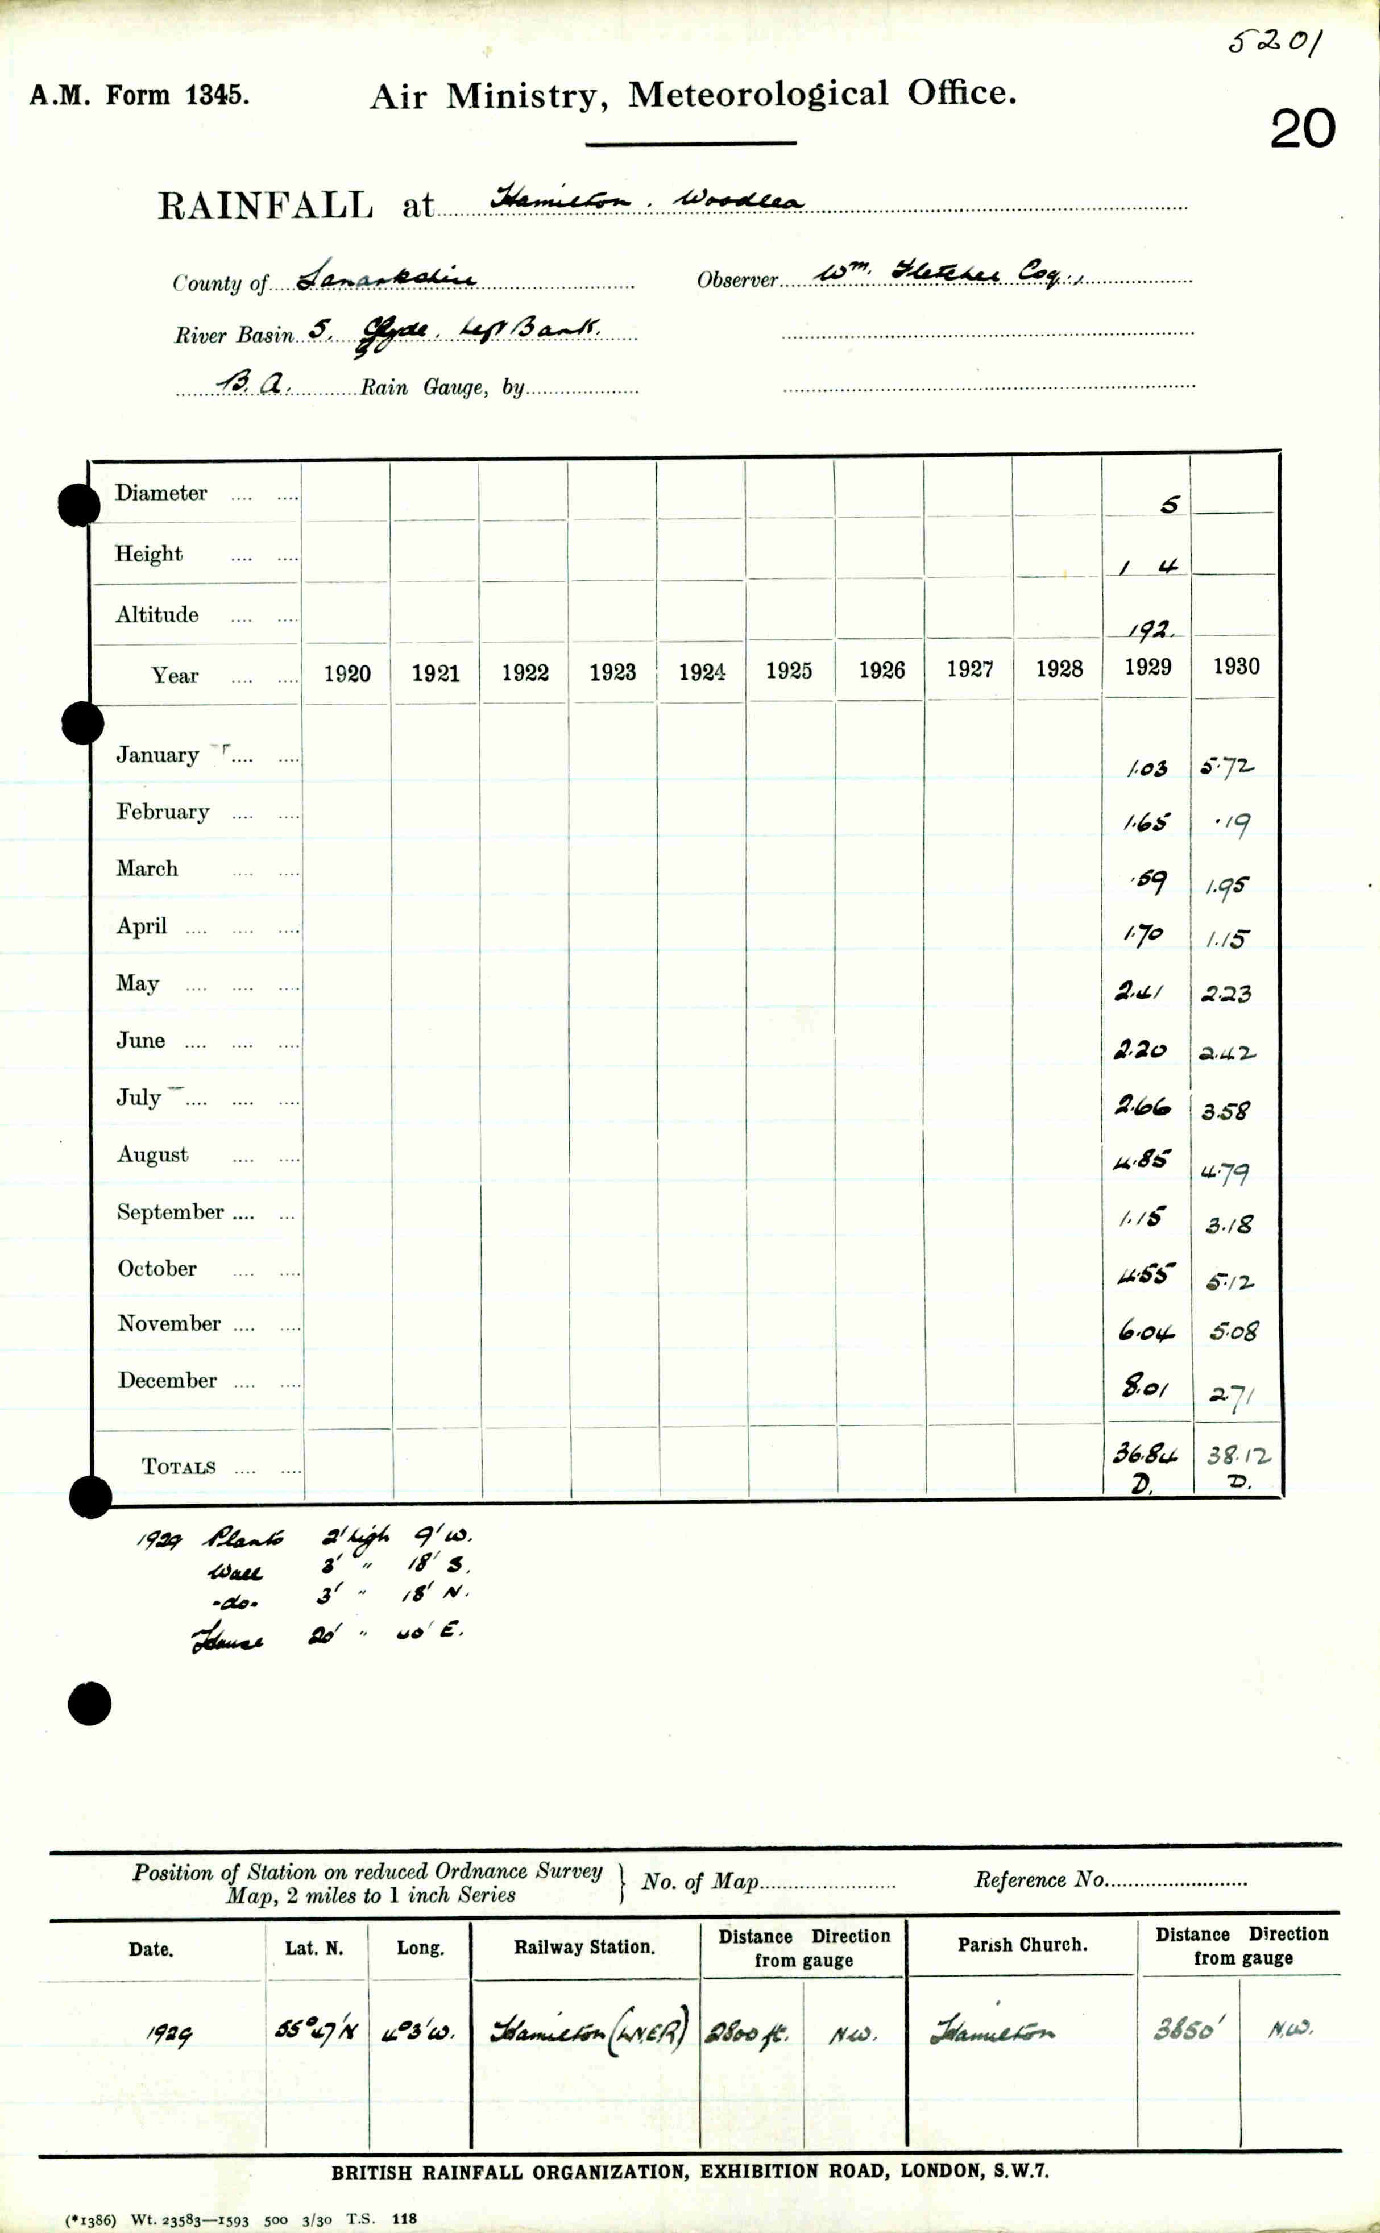 5201
A.M. Form 1345. Air Ministry, Meteorological Office.
20
RAINFALL at Hamilton. Woodlea
County of Lanarkshire Observer Wm. Fletcher Esq.,
River Basin 5. Clyde. Left Bank.
B. A. Rain Gauge, by
Diameter 5
Height 1 4
Altitude 192.
Year 1920 1921 1922 1923 1924 1925 1926 1927 1928 1929 1930
January 1.03 5.72
February 1.65 .19
March .59 1.95
April 1.70 1.15
May 2.41 2.23
June 2.20 2.42
July 2.66 3.58
August 4.85 4.79
September 1.15 3.18
October 4.55 5.12
November 6.04 5.08
December 8.01 2.71
TOTALS 36.84 38.12
D. D.
1929 Plants 2' high 9' W.
Wall 3' " 18' S.
-do- 3' " 18' N.
House 20' " 40' E.
Position of Station on reduced Ordnance Survey
Map, 2 miles to 1 inch Series
No. of Map Reference No.
Date. Lat. N. Long. Railway Station. Distance Direction from gauge Parish Church. Distance Direction from gauge
1929 55°47'N 4°3'W. Hamilton (LNER) 2800 ft. NW. Hamilton 3850' N.W.
BRITISH RAINFALL ORGANIZATION, EXHIBITION ROAD, LONDON, S.W.7.
(*1386) Wt. 23583—1593 500 3/30 T.S. 118